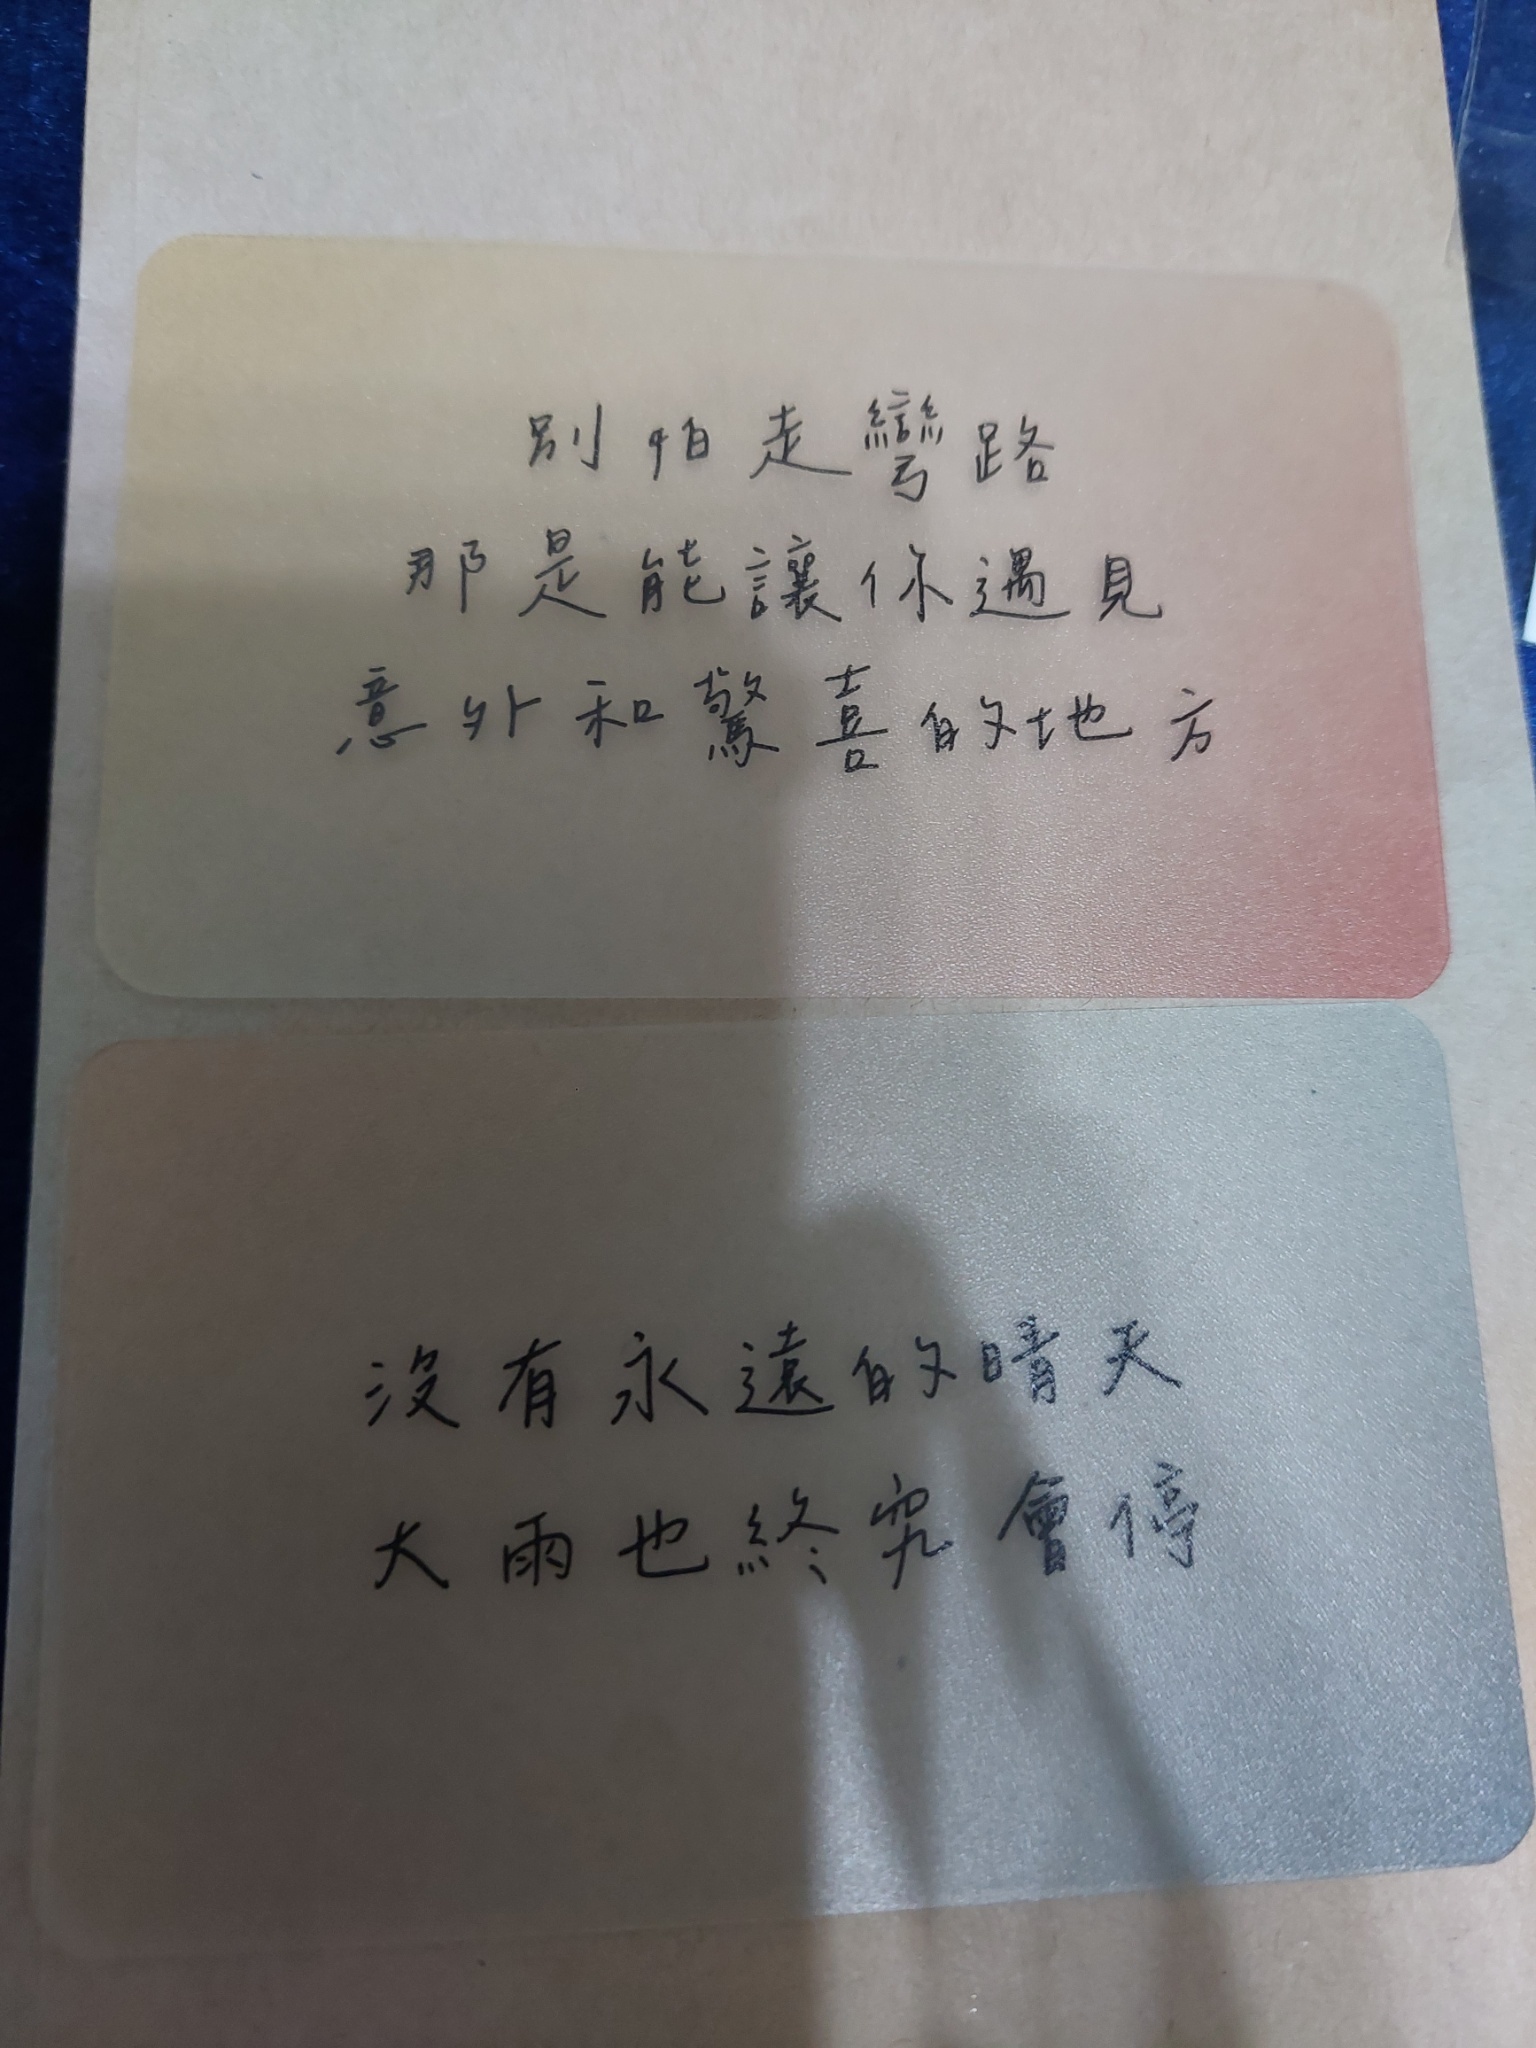 別怕走彎路
那是能讓你遇見
意外和驚喜的地方
沒有永遠的晴天
大雨也終究會停